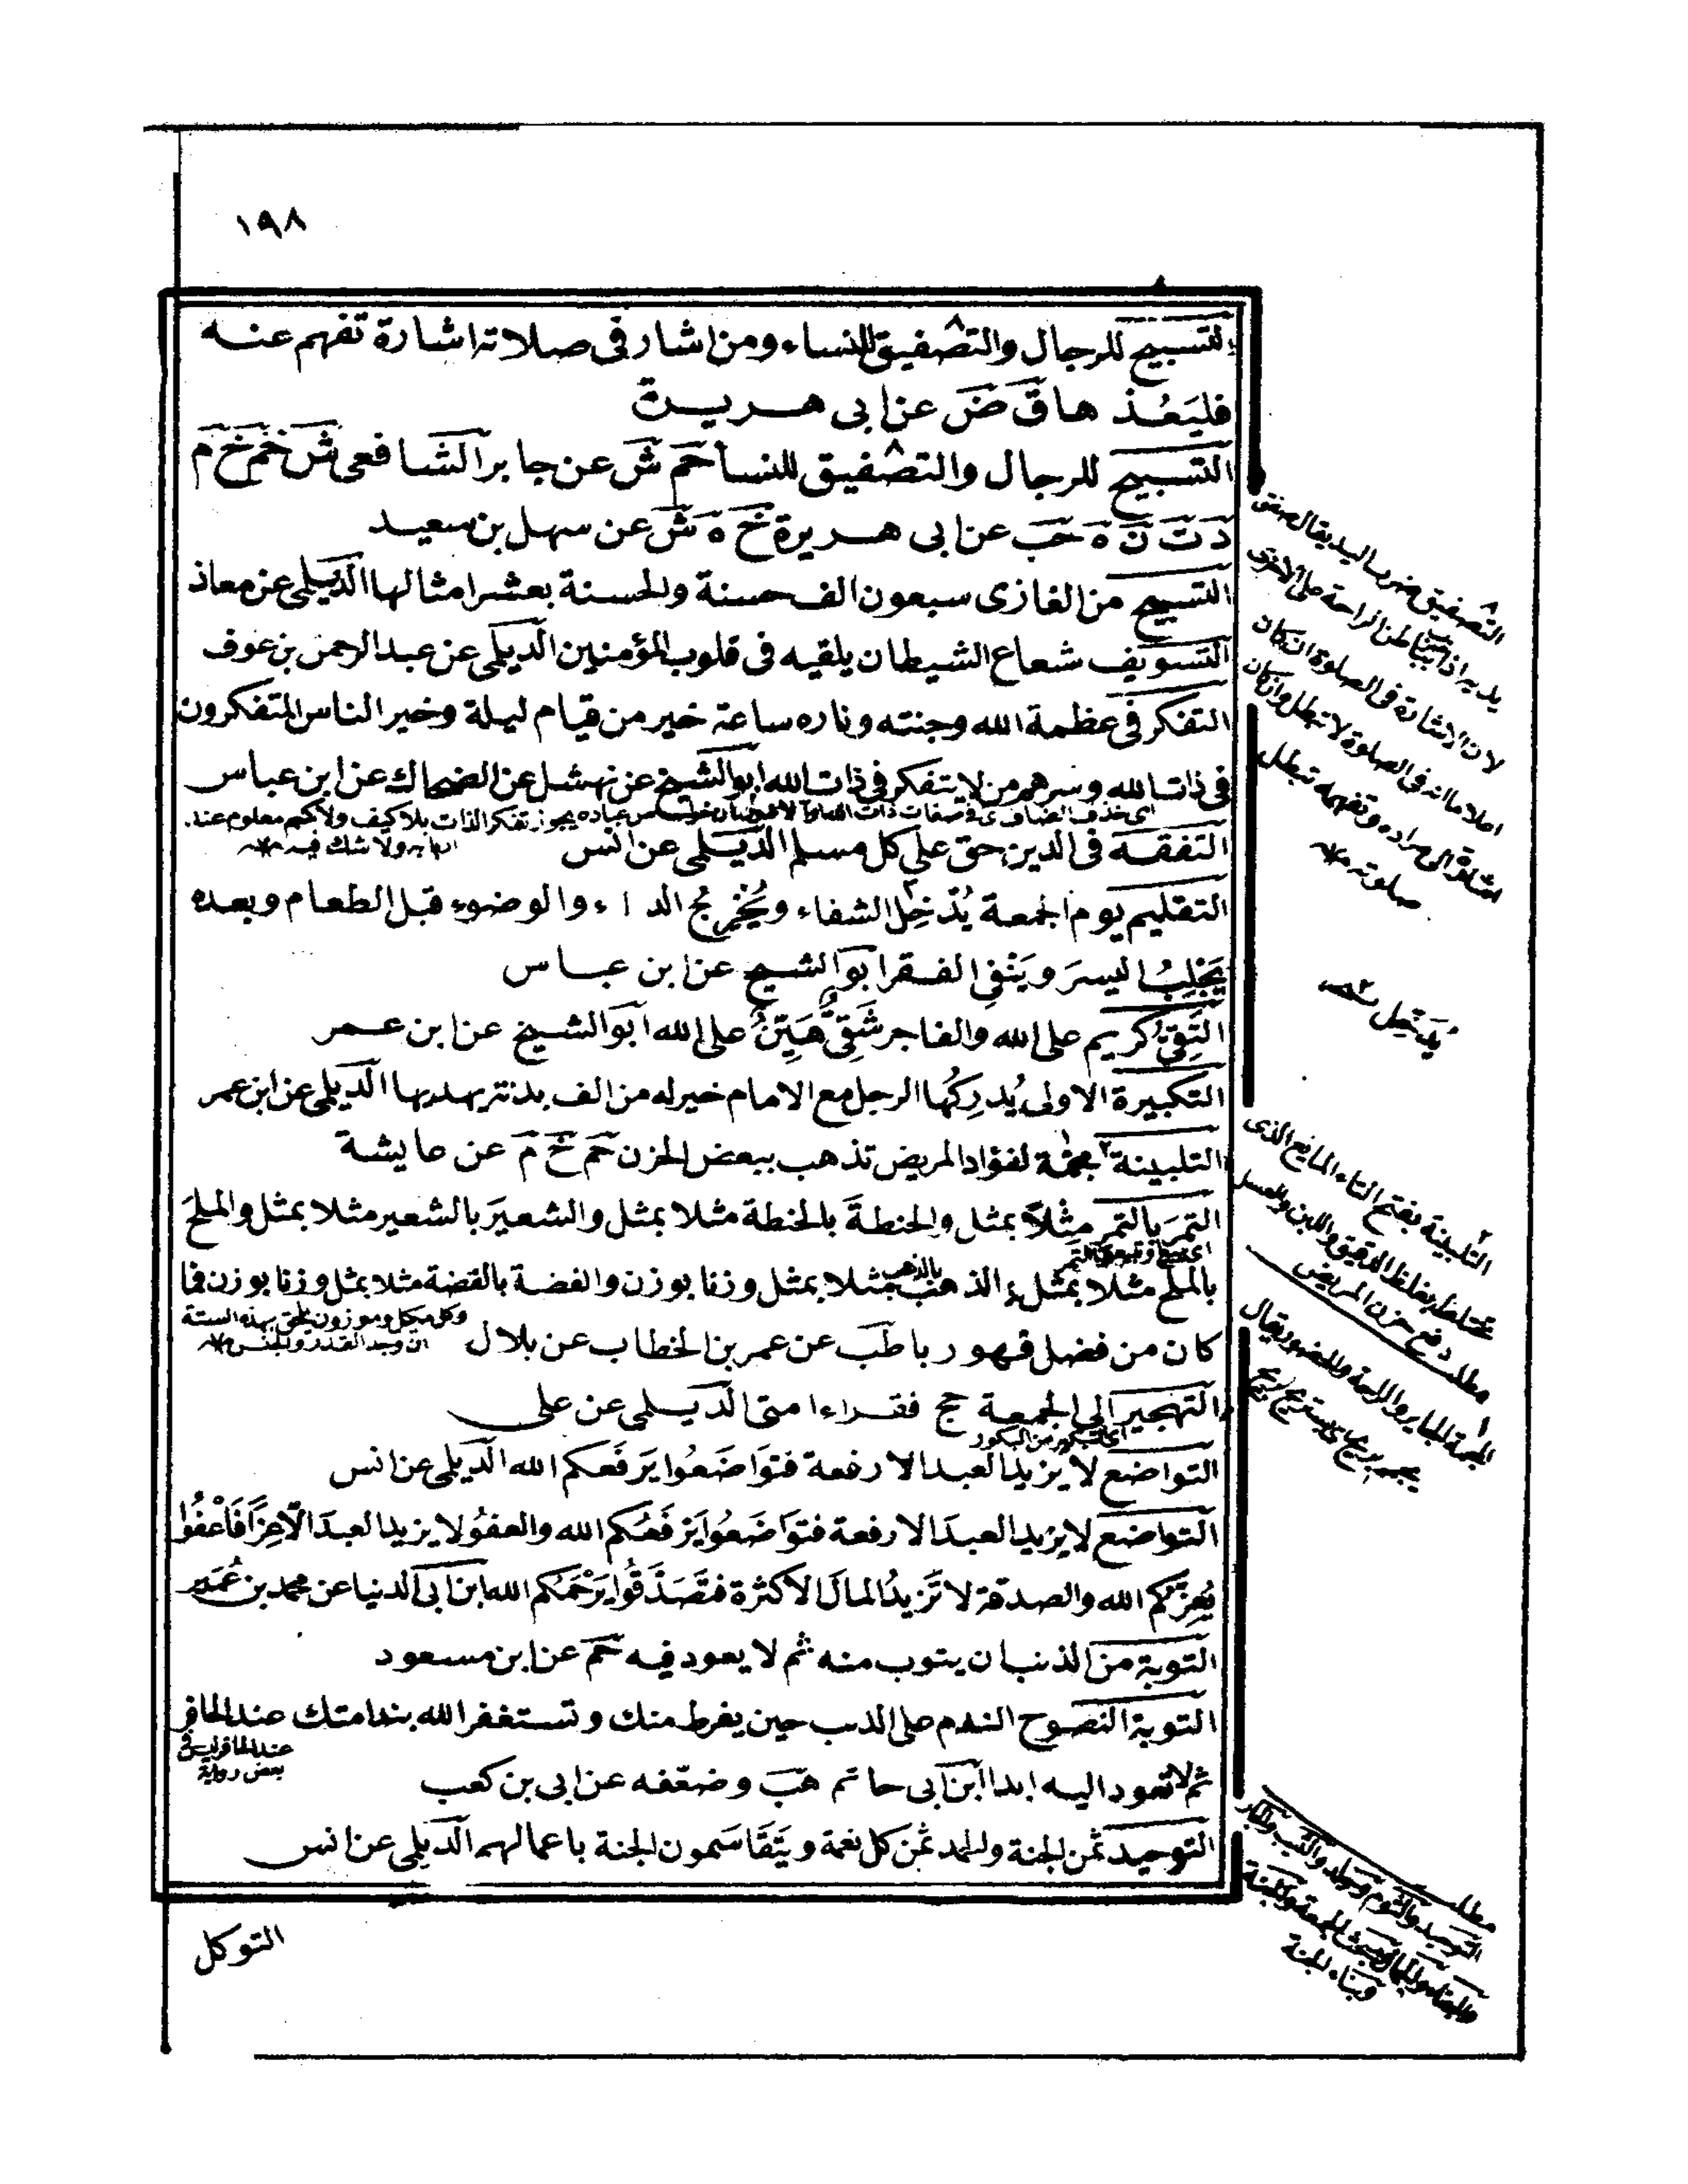 ١٩٨
التسبيح للرجال والتصفيق للنساء ومن اشار فى صلاته اشارة تفهم عنه
فليَعُد ها قَ ضَ عن ابى هريرة
التسبيح للرجال والتصفيق للنسأ حَم شَ عن جابر الشافعى شَ حَم خَ م
دَ تَ نَ ه حَب عن ابى هريرة خَ ه شَ عن سهل بن سعيد
التسبيح من الغازى سبعون الف حسنة والحسنة بعشر امثالها الديلمى عن معاذ
التسويف شعاع الشيطان يلقيه فى قلوب المؤمنين الديلمى عن عبد الرحمن بن عوف
التفكر فى عظمة الله وجنته وناره ساعة خير من قيام ليلة وخير الناس المتفكرون
فى ذات الله وسرهم من لا يتفكر فى ذات الله ابو الشيخ عن نهشل عن الضحاك عن ابن عباس
يجوز تفكر الذات بلا كيف ولا كم معلوم عند
ولا شك فيه
التفقه فى الدين حق على كل مسلم الديلمى عن انس
التقليم يوم الجمعة يُدْخِل الشفاء ويُخْرِج الداء والوضوء قبل الطعام وبعده
يَجْلِبُ اليسرَ ويَنْفِى الفقر ابو الشيخ عن ابن عباس
التَقِىُّ كريم على الله والفاجر شَقِىٌّ هَيِّنٌ على الله ابو الشيخ عن ابن عمر
التكبيرة الاولى يُدركُها الرجل مع الامام خير له من الف بدنة يهديها الديلمى عن ابن عمر
التلبينة مجمّة لفؤاد المريض تذهب ببعض الحزن حَم خَ مَ عن عايشة
التمرَ بالتمر مثلاً بمثل والحنطةَ بالحنطة مثلا بمثل والشعيرَ بالشعير مثلا بمثل والملحَ
بالملح مثلا بمثل والذهب بالذهب مثلا بمثل وزنا بوزن والفضة بالفضة مثلا بمثل وزنا بوزن فما
كان من فضل فهو ربا طَب عن عمر بن الخطاب عن بلال
وكل مكيل وموزون يلحق بهذه الستة
ان وجد القدر والجنس
التهجير الى الجمعة حج فقراء امتى الديلمى عن على
التواضع لا يزيد العبد الا رفعة فتواضَعُوا يَرفَعكم الله الديلمى عن انس
التواضع لا يزيد العبدَ الا رفعة فتوَاضَعُوا يَرفَعْكم الله والعفوُ لا يزيد العبدَ الّا عِزًّا فَاعْفُوا
يُعِزّكم الله والصدقة لا تَزيدُ المالَ الا كثرة فتَصَدَّقُوا يَرْحَمْكم الله ابن ابى الدنيا عن محمد بن عُمَير
التوبة من الذنب ان يتوب منه ثم لا يعود فيه حَم عن ابن مسعود
التوبة النصوح الندم على الذنب حين يفرط منك وتستغفر الله بندامتك عند الحافر
عند الحافر ليس فى
بعض رواية
ثم لا تعود اليه ابدا ابن ابى حاتم هَب وضعّفه عن ابى بن كعب
التوحيد ثمن الجنة والحمد ثمن كل نعمة ويَتَقَاسَمون الجنة باعمالهم الديلمى عن انس
التوكل
التصفيق ضرب اليد يقال صفق
يديه اذا ضرب باطن الراحة على الاخرى
لان الاشارة فى الصلوة ان كان
اعلاما انه فى الصلوة لا تبطل وان كان
اشارة الى مراده وتفهمه تبطل
صلوته
يُدخل
التلبينة بفتح التاء المايع الذى
مطلب دفع حزن المريض
مطلب
وبناء الجنة